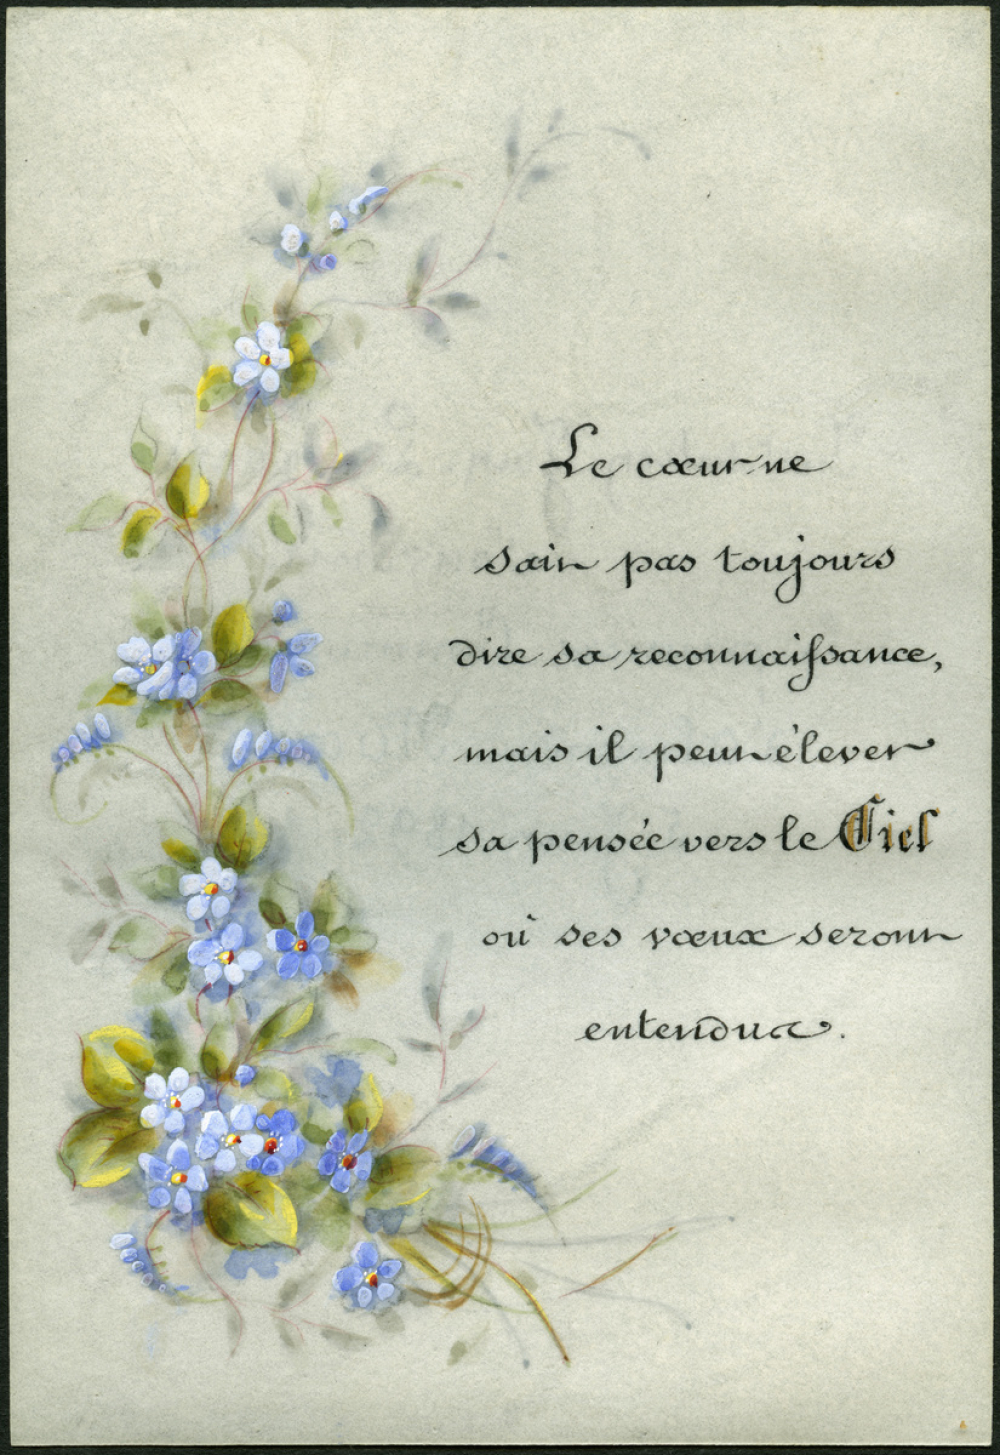 Le cœur ne
sait pas toujours
dire sa reconnaissance,
mais il peut élever
sa pensée vers le Ciel
où ses vœux seront
entendus.